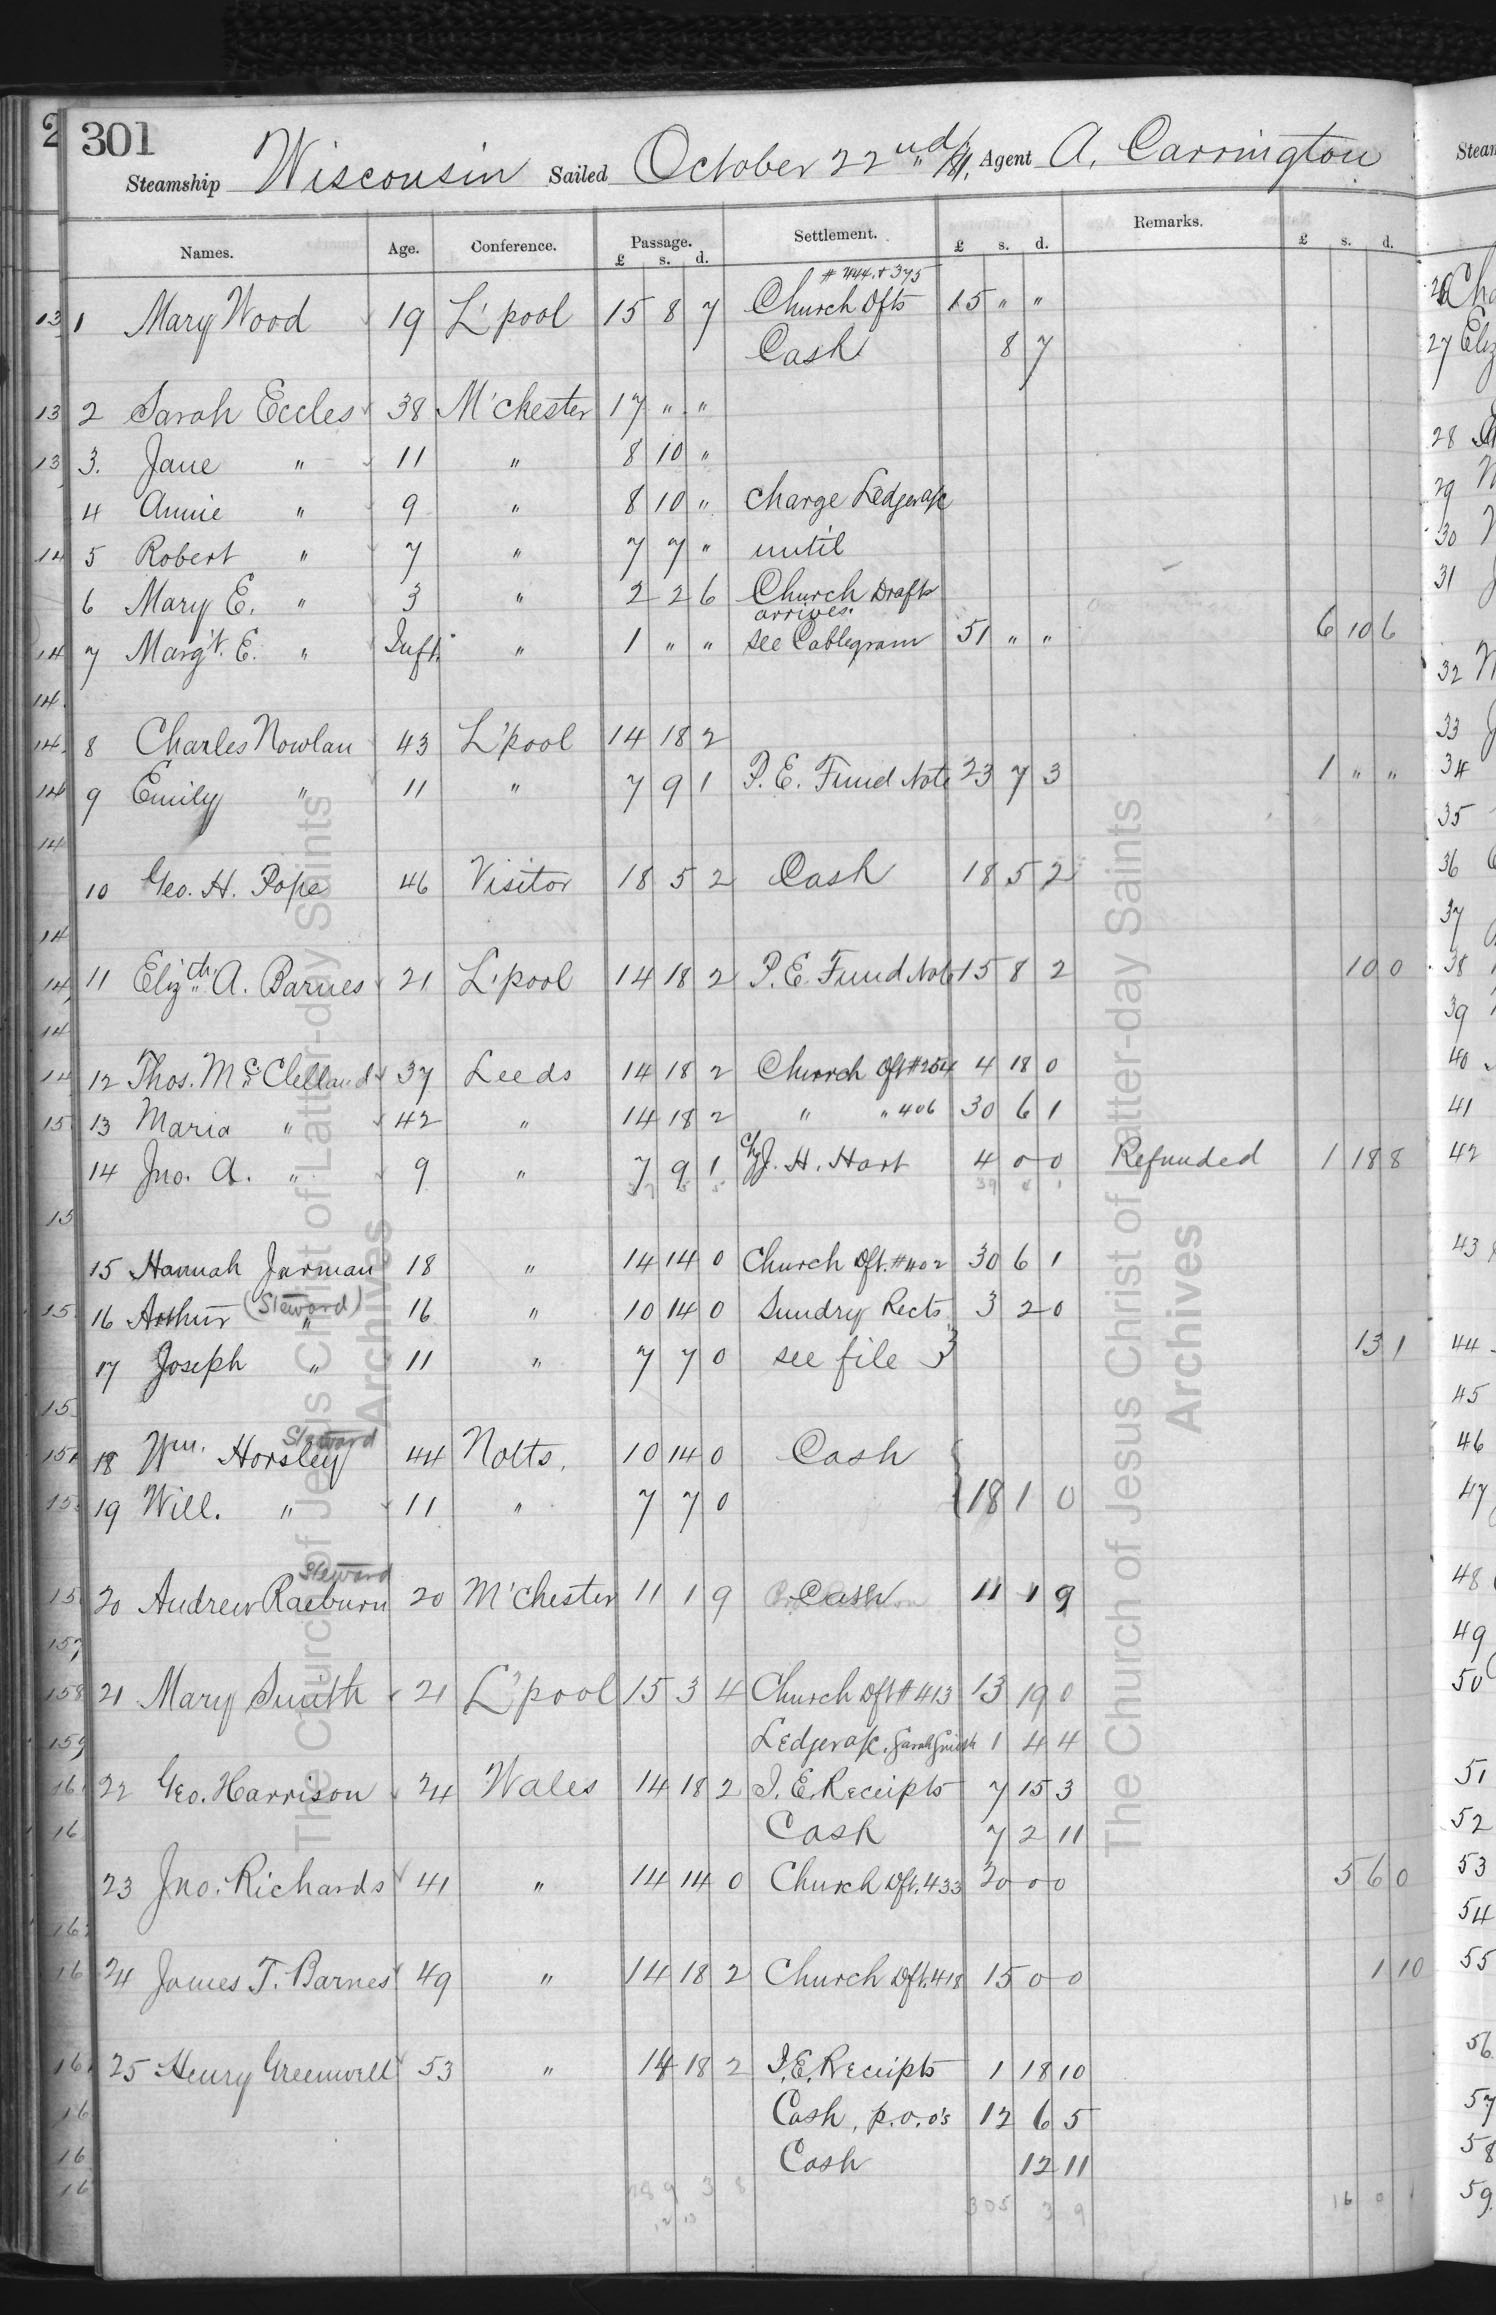 301
Steamship Wisconsin Sailed October 22nd/81. Agent A. Carrington
Names. Age. Conference. Passage. Settlement. £ s. d. Remarks. £ s. d.
£ s. d.
# 444. & 375
1 Mary Wood 19 L'pool 15 8 7 Church Dfts 15 " "
Cash 8 7
2 Sarah Eccles 38 M'chester 17 " "
3. Jane " 11 " 8 10 "
4 Annie " 9 " 8 10 " Charge Ledger a/c
5 Robert " 7 " 7 7 " until
6 Mary E. " 3 " 2 2 6 Church Drafts
arrives.
7 Marg't. E. " Inft. " 1 " " see Cablegram 51 " " 6 10 6
8 Charles Nowlan 43 L'pool 14 18 2
9 Emily " 11 " 7 9 1 P. E. Fund Note 23 7 3 1 " "
10 Geo. H. Pope 46 Visitor 18 5 2 Cash 18 5 2
11 Elizth. A. Barnes 21 L'pool 14 18 2 P. E. Fund Note 15 8 2 10 0
12 Thos. McClelland 37 Leeds 14 18 2 Church Dft #254 4 18 0
13 Maria " 42 " 14 18 2 " " 406 30 6 1
14 Jno. A. " 9 " 7 9 1 J. H. Hart 4 0 0 Refunded 1 18 8
15 Hannah Jarman 18 " 14 14 0 Church Dft. #402 30 6 1
16 Arthur (Steward) " 16 " 10 14 0 Sundry Rects 3 2 0
17 Joseph " 11 " 7 7 0 see file 3 13 1
Steward
18 Wm. Horsley 44 Notts. 10 14 0 Cash
19 Will. " 11 " 7 7 0 18 1 0
Steward
20 Andrew Raeburn 20 M'chester 11 1 9 Cash 11 1 9
21 Mary Smith 21 L'pool 15 3 4 Church Dft # 413 13 19 0
Ledger a/c. Sarah Smith 1 4 4
22 Geo. Harrison 24 Wales 14 18 2 I. E. Receipts 7 15 3
Cash 7 2 11
23 Jno. Richards 41 " 14 14 0 Church Dft. 433 20 0 0 5 6 0
24 James T. Barnes 49 " 14 18 2 Church Dft. 418 15 0 0 1 10
25 Henry Greenwell 53 " 14 18 2 I. E. Receipts 1 18 10
Cash, p.o.o's 12 6 5
Cash 12 11
305 3 9 16 0
The Church of Jesus Christ of Latter-day Saints
Archives
The Church of Jesus Christ of Latter-day Saints
Archives